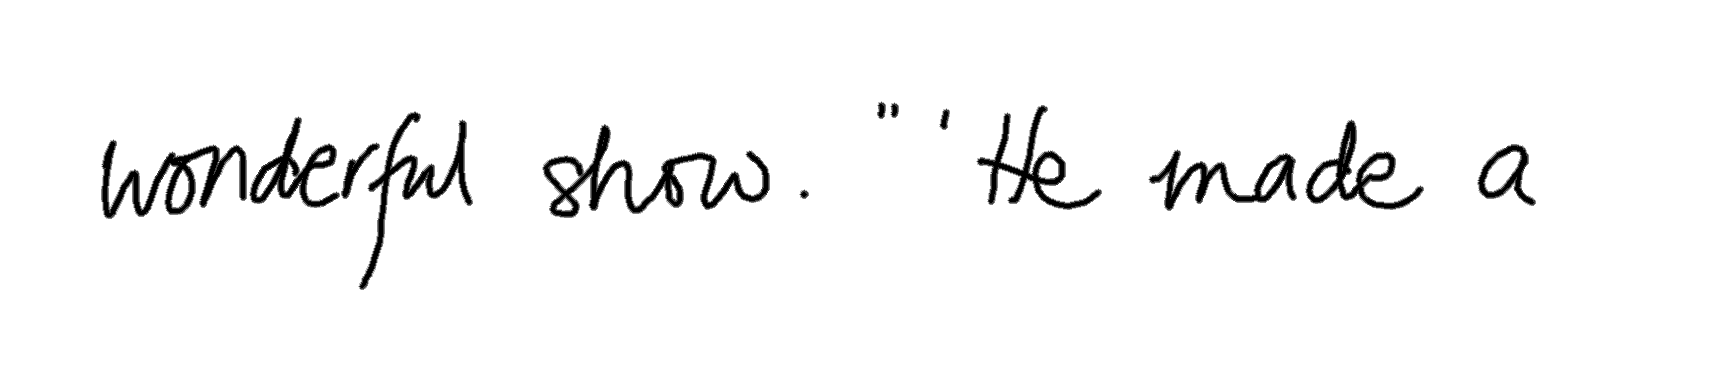 wonderful show. " ' He made a